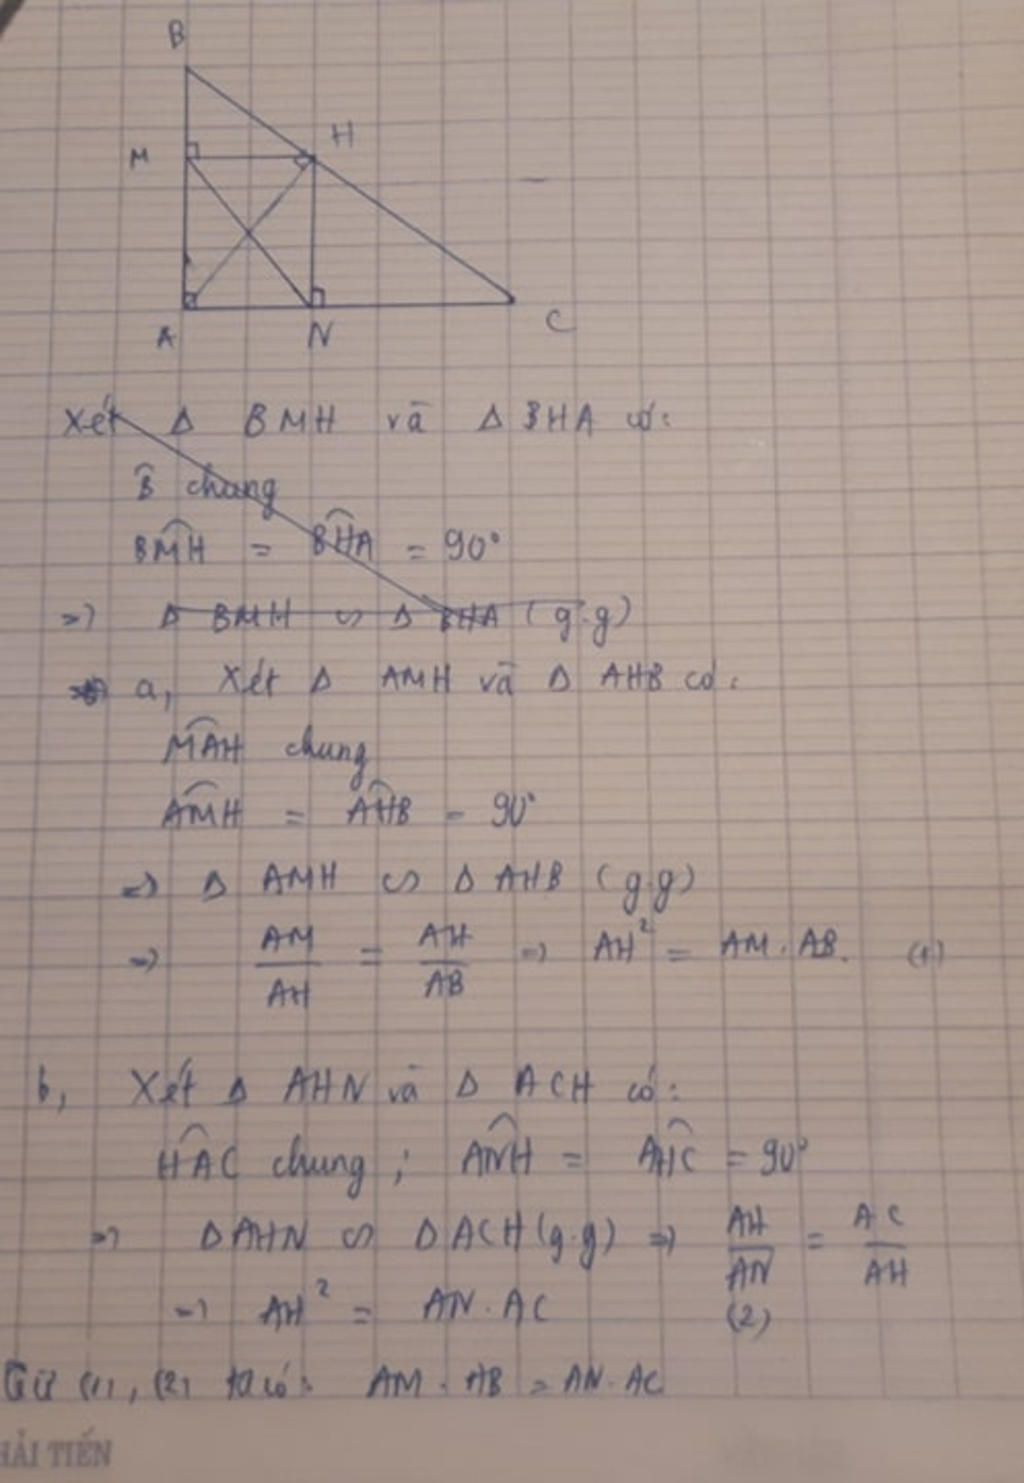 B
M
H
A
N
C
Xét Δ BMH và Δ BHA có:
B̂ chung
BMH = BHA = 90°
=> Δ BMH ∽ Δ BHA (g.g)
a, Xét Δ AMH và Δ AHB có:
MAH chung
AMH = AHB = 90°
=> Δ AMH ∽ Δ AHB (g.g)
=> AM/AH = AH/AB => AH² = AM . AB. (1)
b, Xét Δ AHN và Δ ACH có:
HAC chung ; ANH = AHC = 90°
=> Δ AHN ∽ Δ ACH (g.g) => AH/AN = AC/AH
=> AH² = AN . AC (2)
Từ (1), (2) ta có: AM . AB = AN . AC
HẢI TIẾN